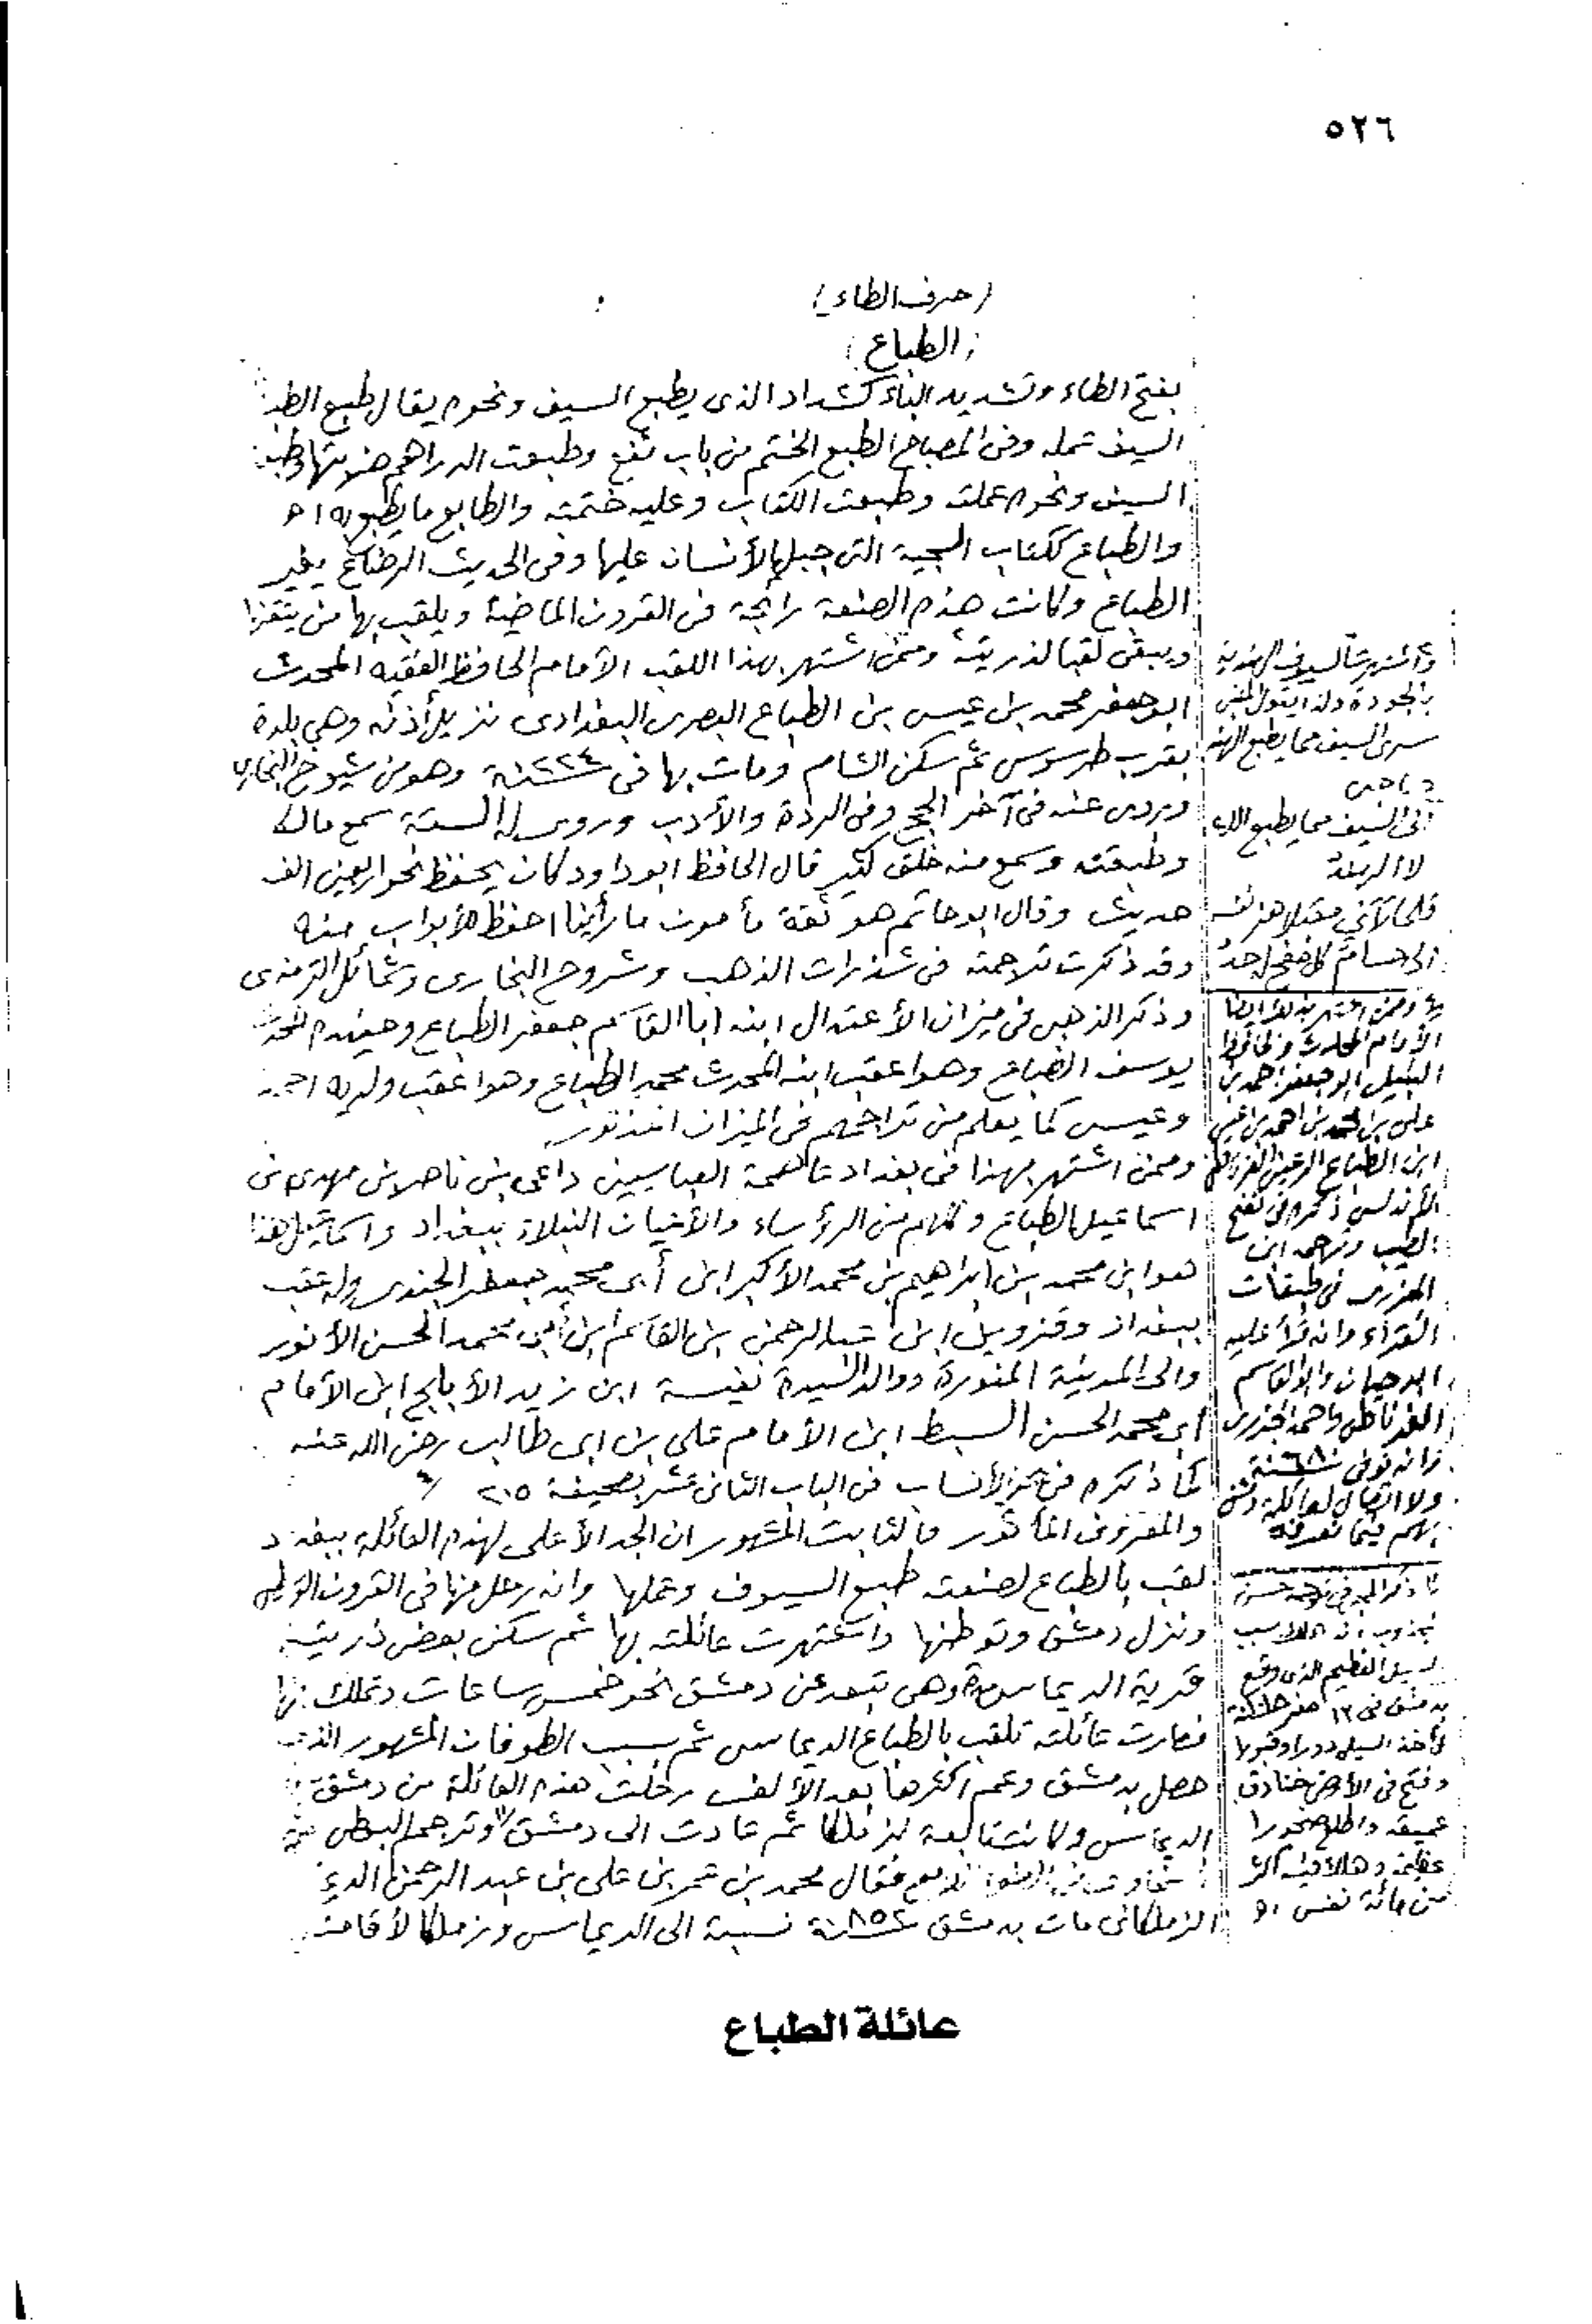 ٥٢٦
(حرف الطاء)
(الطباع)
بفتح الطاء وتشديد الباء كشداد الذى يطبع السيف ونحوه يقال طبع
السيف عمله وفى المصباح الطبع الختم من باب نفع وطبعت الدراهم ضربتها وطبعت
السيف ونحوه عملته وطبعت الكتاب وعليه ختمته والطابع ما يطبع به اه
والطباع ككتاب السجية التى جبل الأنسان عليها وفى الحديث الرضاع يغير
الطباع وكانت هذه الصنعة رائجة فى القرون الماضية ويلقب بها من
ويبقى لقبا لذريته وممن اشتهر بهذا اللقب الأمام الحافظ الفقيه المحدث
ابو جعفر محمد بن عيسى بن الطباع البصرى البغدادى نزيل أذنه وهى بلدة
بقرب طرسوس ثم سكن الشام ومات بها فى سنة ٢٢٤ وهو من شيوخ البخارى
ويروى عنه فى آخر الحج وفى الردة والأدب وروى له الستة سمع مالك
وطبقته وسمع منه خلق كثير قال الحافظ ابو داود كان يحفظ نحو اربعين الف
حديث وقال ابو حاتم هو ثقة مأمون ما رأينا احفظ للأبواب منه
وقد ذكرت ترجمته فى شذرات الذهب وشروح البخارى وشمائل الترمذى
وذكر الذهبى فى ميزان الأعتدال ابنه ابا القاسم جعفر الطباع وحفيده المحدث
يوسف الطباع وهو اعقب ابنه المحدث محمد الطباع وهو اعقب ولديه احمد
وعيسى كما يعلم من تراجمهم فى الميزان
وممن اشتهر بهذا فى بغداد عاصمة العباسيين داعى بن ناصر بن مهدى بن
اسماعيل الطباع وكلهم من الرؤساء والأعيان النبلاء ببغداد واسماعيل هذا
هو ابن محمد بن ابراهيم بن محمد الأكبر ابن أبى محمد جعفر الجندى وله عقب
ببغداد وقزوين ابن عبد الرحمن بن القاسم ابن أبى محمد الحسن الأنور
والى المدينة المنورة ووالد السيدة نفيسة ابن زيد الأبلج ابن الأمام
ابى محمد الحسن السبط ابن الأمام على بن ابى طالب رضى الله عنه
كما ذكره فى الأنساب فى الباب الثانى عشر بصحيفة ٢٠٥
والمعروف المأثور والثابت المشهور ان الجد الأعلى لهذه العائلة ببغداد
لقب بالطباع لصنعته طبع السيوف وعملها وانه رحل منها فى القرون
ونزل دمشق وتوطنها واشتهرت عائلته بها ثم سكن بعض ذريته
قرية الديماس وهى تبعد عن دمشق نحو خمس ساعات وتملك بها
فصارت عائلته تلقب بالطباع الديماسى ثم بسبب الطوفان المشهور الذى
حصل بدمشق وعم اكثرها بعد الألف رحلت هذه العائلة من دمشق
الديماس وكانت تابعة لزملكا ثم عادت الى دمشق وترجم
السخاوى فى الضوء اللامع فقال محمد بن عمر بن على بن عبد الرحمن
الزملكانى مات بدمشق سنة ٨٥٢ نسبة الى الديماس وزملكا لأقامته
واشتهرت السيوف الهندية
بالجودة ولذا يقول المتنبى
سرى السيف مما يطبع الهند
صاحبى
الى السيف مما يطبع الله
لا الهند
فلما رآنى مقبلا هز نفسه
الى حسام كل صفح له حد
وممن اشتهر به ايضا
الأمام المحدث والحافظ
النبيل ابو جعفر احمد بن
على بن محمد بن احمد بن عيسى
ابن الطباع الرعينى الغرناطى
الأندلسى ذكره فى نفح
الطيب وترجمه ابن
الجزرى فى طبقات
القراء وانه قرأ عليه
ابو حيان وابو القاسم
الغرناطى
وانه توفى سنة ٦٨٠
ولا اتصال لعائلة دمشق
بهم فيما نعرفه
السيل العظيم الذى وقع
بدمشق فى ١٢ صفر
فأخذ السيل دورا وقبورا
وفتح فى الأرض خنادق
عميقة واطلع صخورا
عظيمة وهلك فيه اكثر
من مائة نفس اه
عائلة الطباع